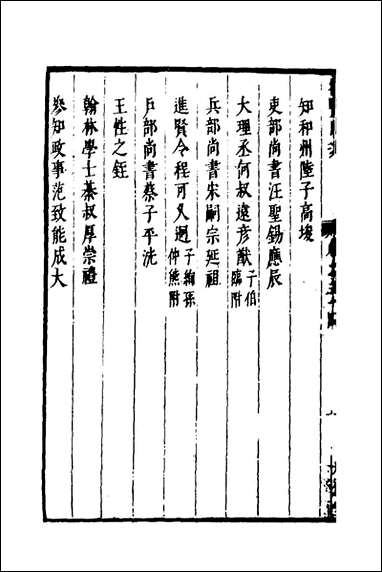 知和州陸子高埈
吏部尚書汪聖錫應辰
大理丞何叔遠彦猷子伯臨附
兵部尚書宋嗣宗延祖
進賢令程可久迥子絢孫仲熊附
戶部尚書蔡子平洸
王性之銍
翰林學士綦叔厚崇禮
參知政事范致能成大